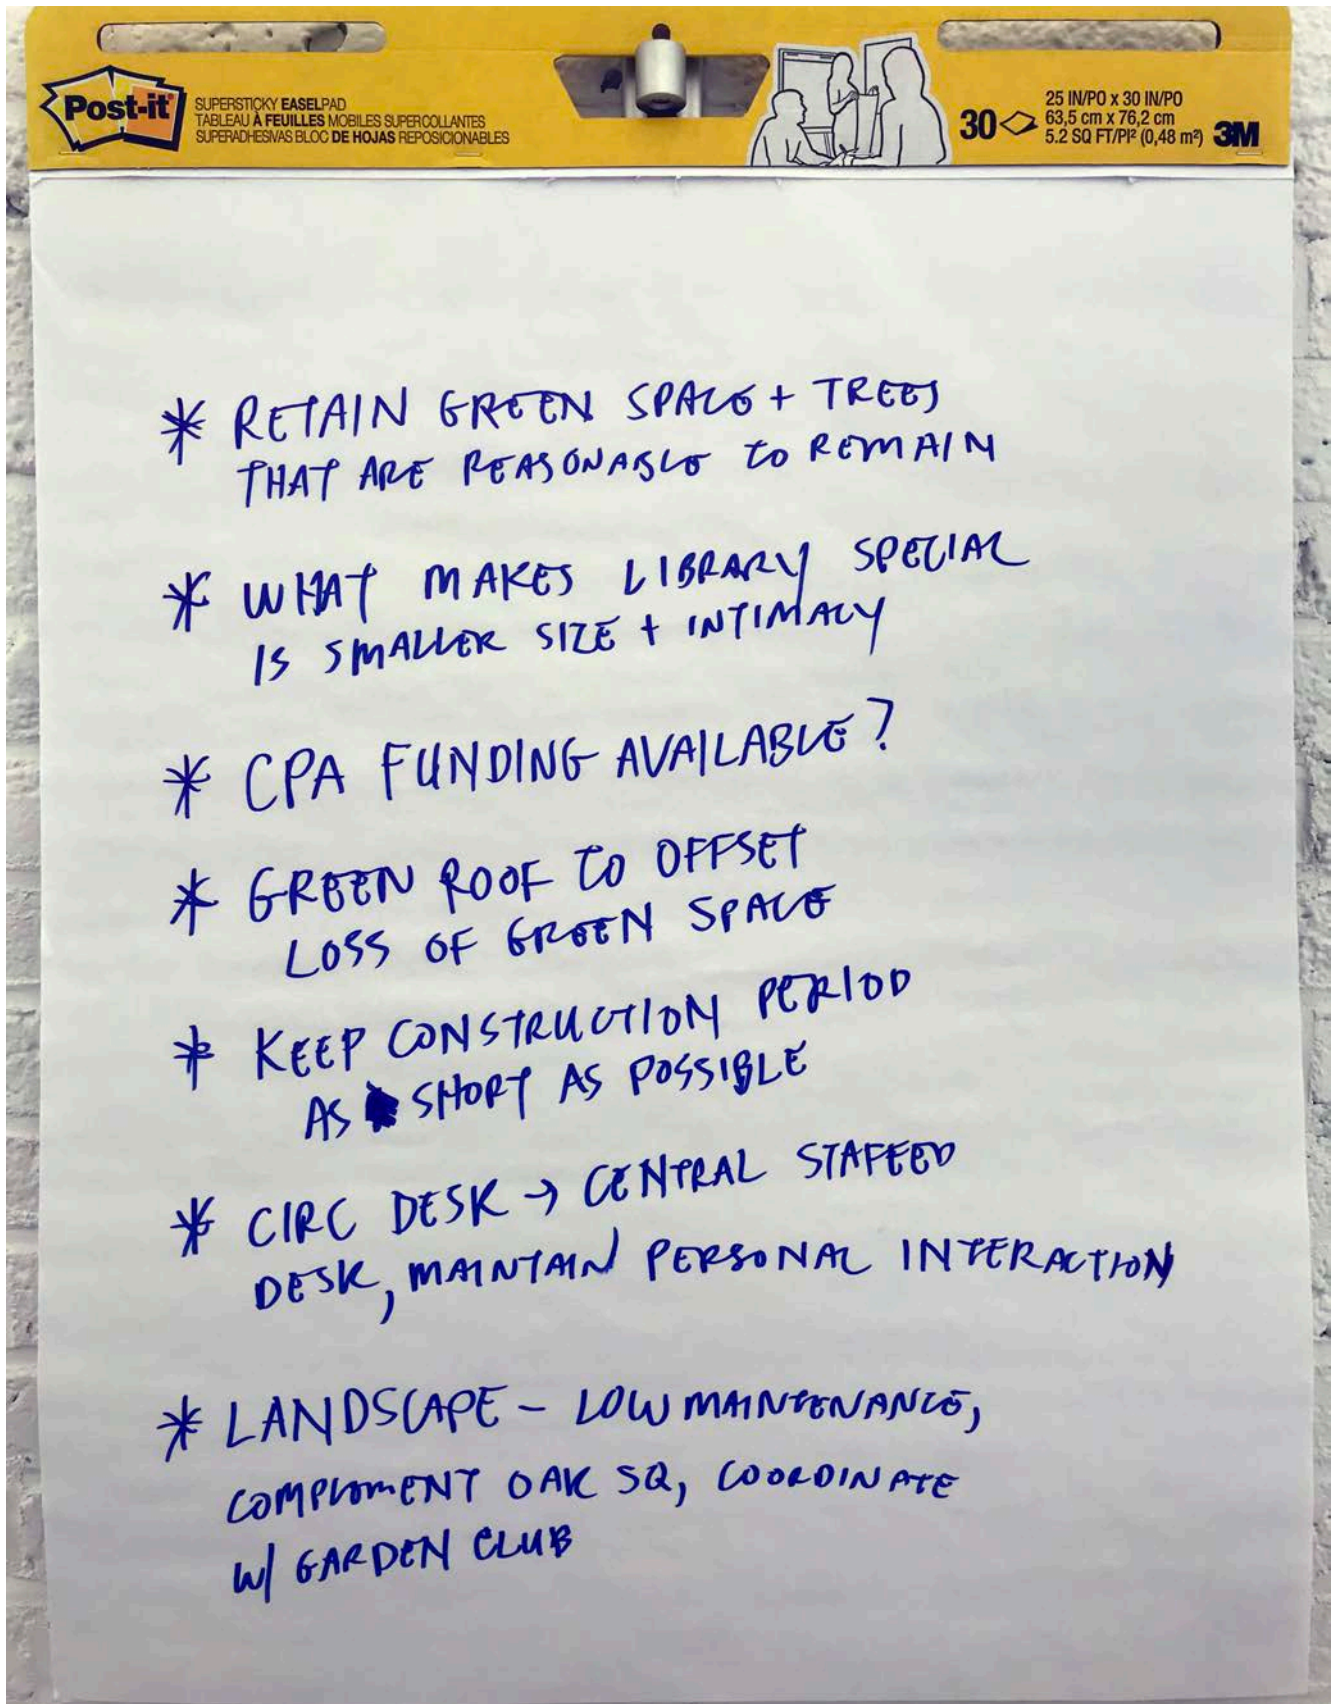 Post-it
SUPERSTICKY EASELPAD
TABLEAU À FEUILLES MOBILES SUPERCOLLANTES
SUPERADHESIVAS BLOC DE HOJAS REPOSICIONABLES
30
25 IN/PO x 30 IN/PO
63,5 cm x 76,2 cm
5.2 SQ FT/PI² (0,48 m²)
3M
* RETAIN GREEN SPACE + TREES
THAT ARE REASONABLE TO REMAIN
* WHAT MAKES LIBRARY SPECIAL
IS SMALLER SIZE + INTIMACY
* CPA FUNDING AVAILABLE?
* GREEN ROOF TO OFFSET
LOSS OF GREEN SPACE
* KEEP CONSTRUCTION PERIOD
AS SHORT AS POSSIBLE
* CIRC DESK → CENTRAL STAFFED
DESK, MAINTAIN PERSONAL INTERACTION
* LANDSCAPE - LOW MAINTENANCE,
COMPLEMENT OAK SQ, COORDINATE
W/ GARDEN CLUB